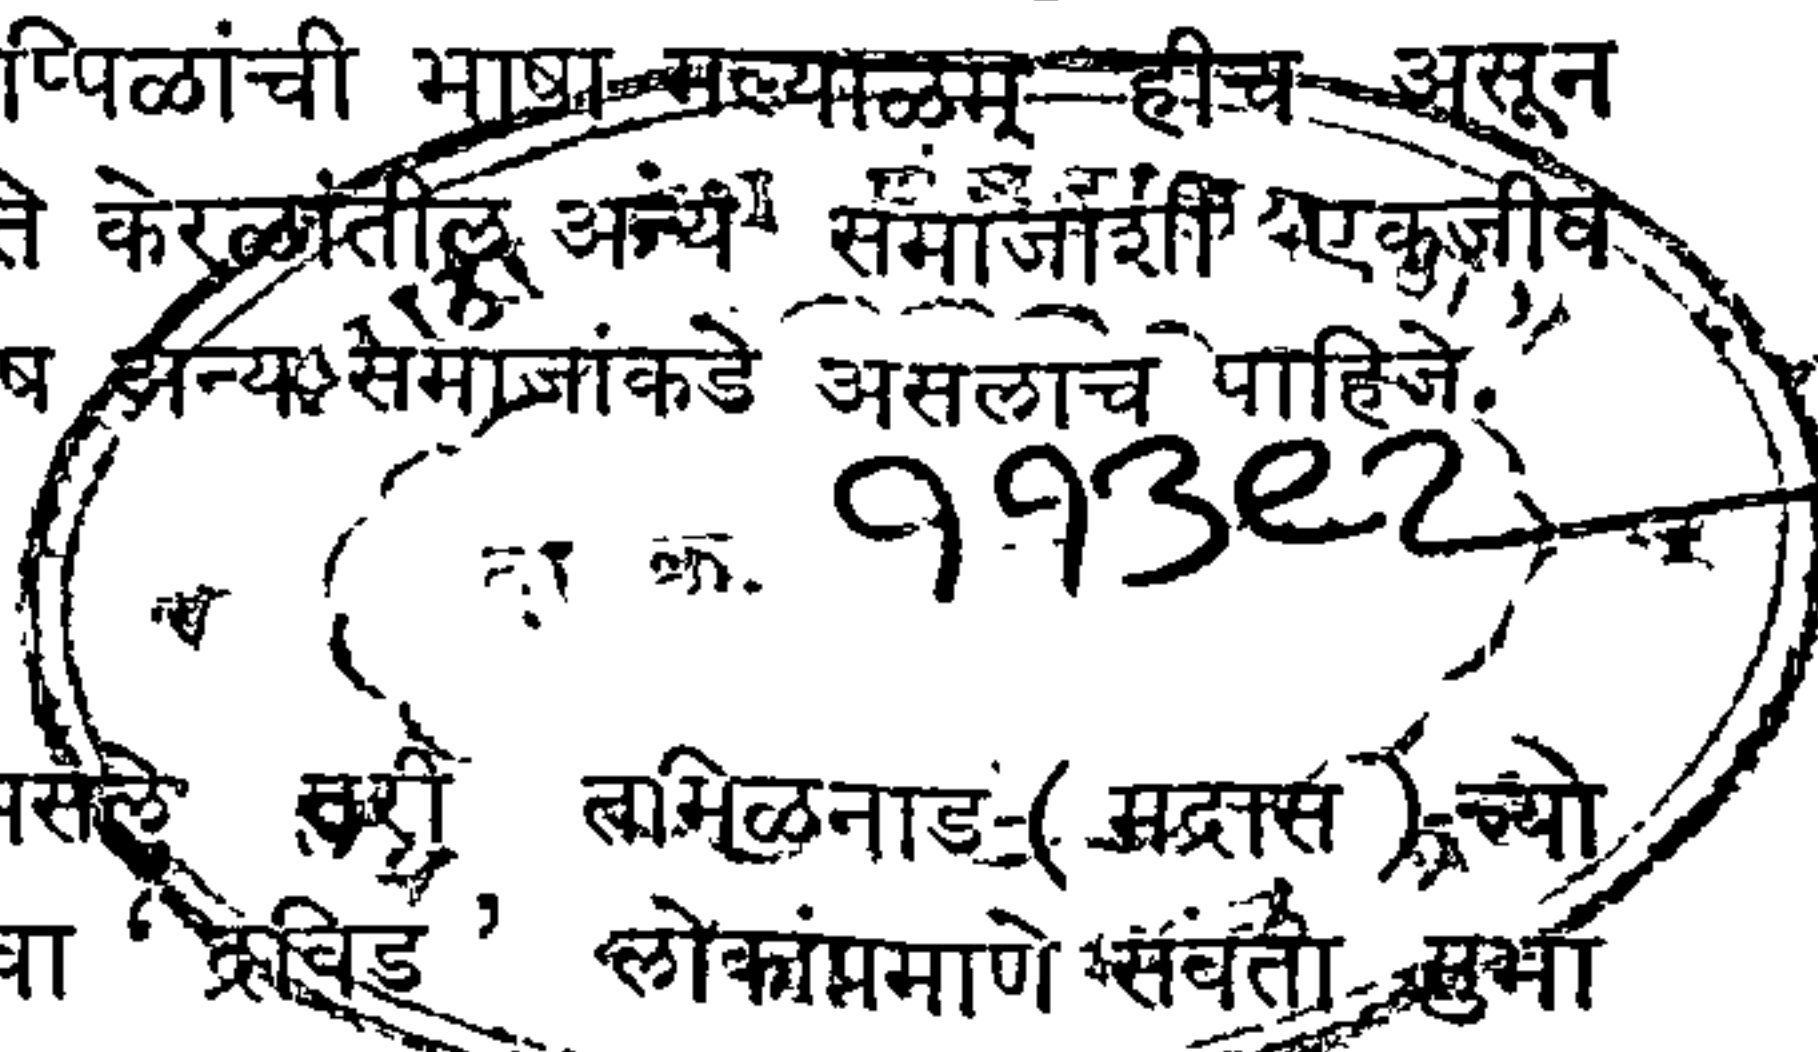 प्पिळांची भाषा मल्याळम् हीच असून
ते केरळांतील अन्य समाजांशीं एकजीव
ष अन्य समाजांकडे असलाच पाहिजे.”
११३९२
असले तरी तामिळनाड (मद्रास) च्या
वा ‘द्रविड’ लोकांप्रमाणे